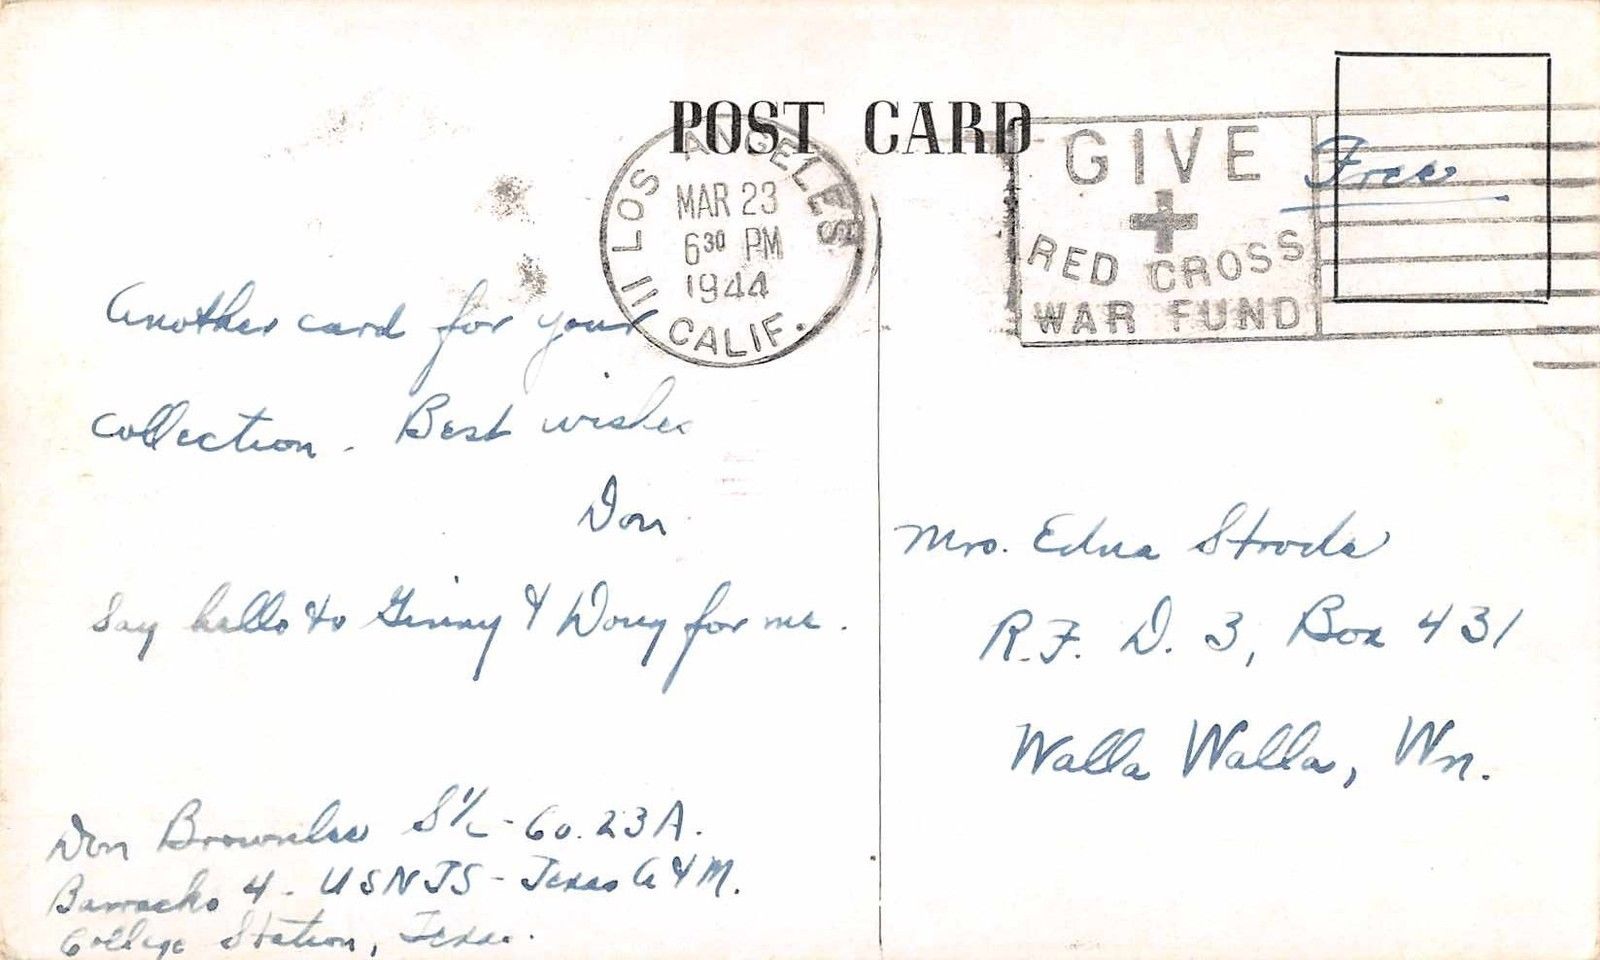 POST CARD
LOS ANGELES
MAR 23
6 30 PM
1944
CALIF.
GIVE
RED CROSS
WAR FUND
Free
Another card for your
collection. Best wishes
Don
Say hello to Ginny & Doug for me.
Don Brownlee S 1/c - Co. 23A.
Barracks 4 - USNTS - Texas A & M.
College Station, Texas.
Mrs. Edna Stroda
R.F.D. 3, Box 431
Walla Walla, Wn.